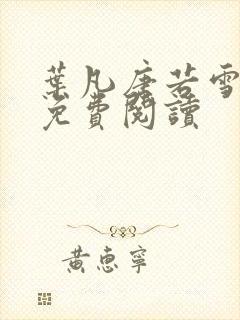 葉凡唐若雪
免費閱讀
黃惠寧